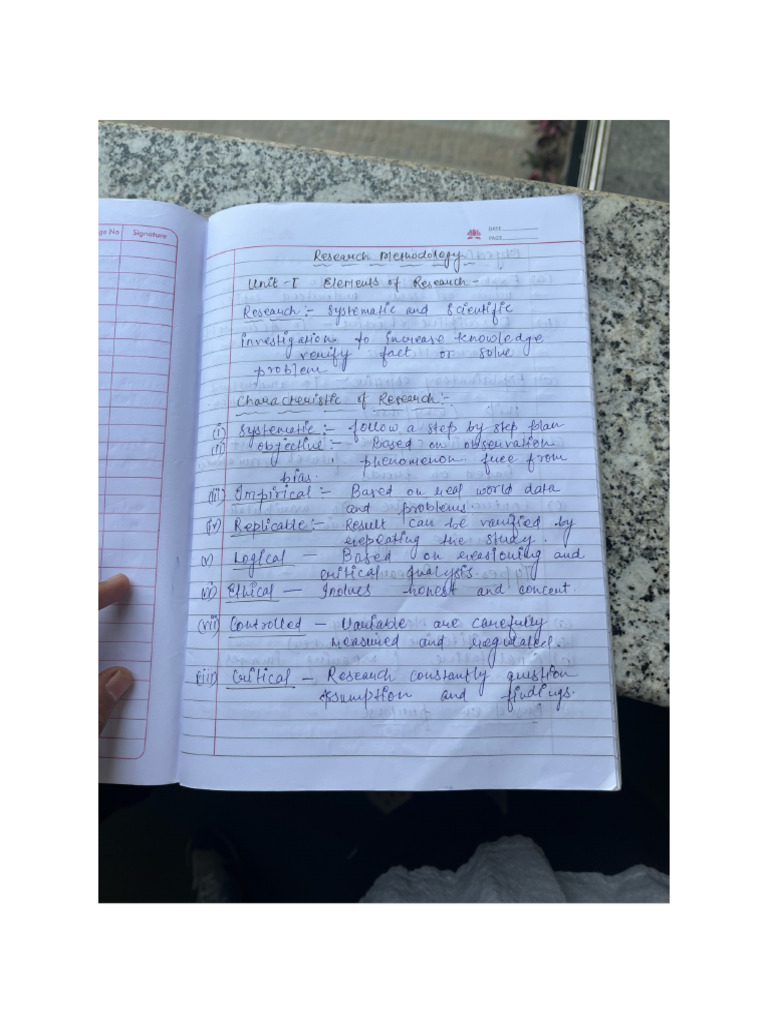 ge No
Signature
DATE
PAGE
Research Methodology
Unit - I Elements of Research :-
Research :- Systematic and Scientific
investigation to increase knowledge
verify fact or solve
problem
Characteristic of Research :-
(i) Systematic :- follow a step by step plan
(ii) Objective :- Based on observation
phenomenon free from
bias.
(iii) Impirical :- Based on real world data
and problems.
(iv) Replicable :- Result can be varified by
repeating the study.
(v) Logical - Based on reasioning and
critical analysis.
(vi) Ethical - Inolves honest and concent.
(vii) Controlled - Variable are carefully
measured and regulated.
(viii) Critical - Research constantly question
and findings.